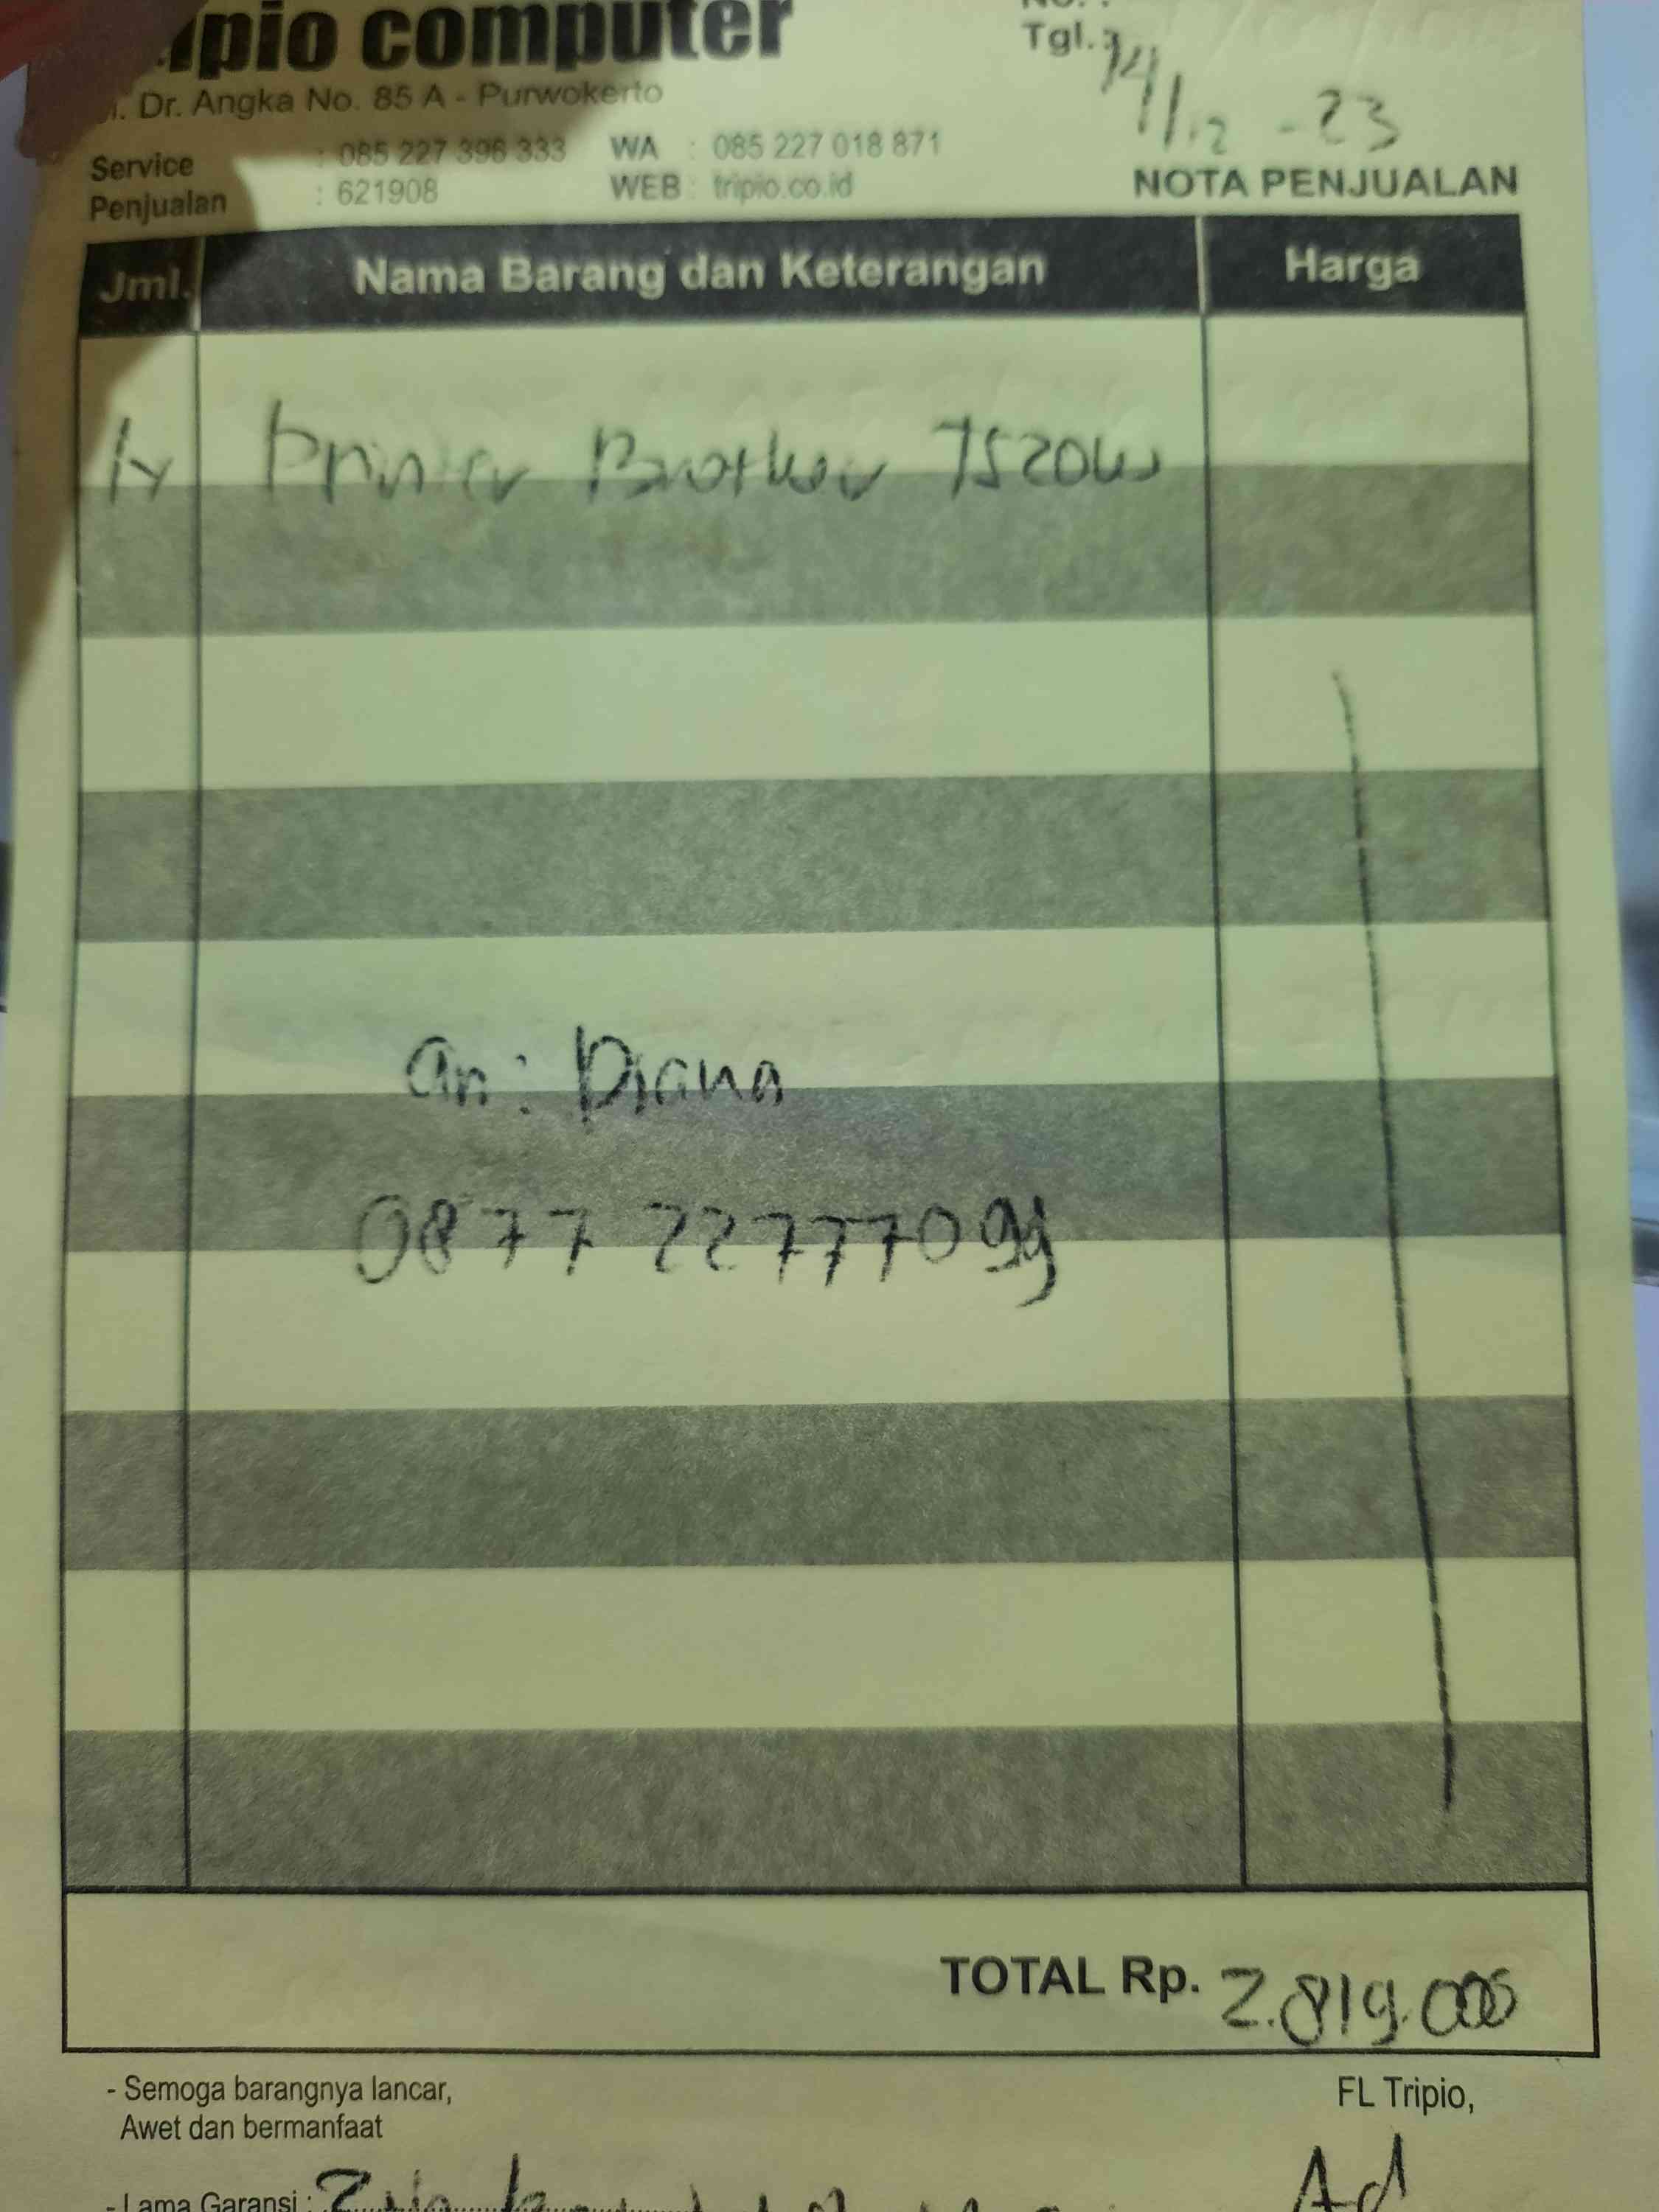 ripio computer
Dr. Angka No. 85 A - Purwokerto
Service : 085 227 396 333 WA : 085 227 018 871
Penjualan : 621908 WEB : tripio.co.id
No. :
Tgl. : 14/12 - 23
NOTA PENJUALAN
Jml. Nama Barang dan Keterangan Harga
1x Printer Brother 7520W
an: Diana
0877 22777099
TOTAL Rp. 2.819.000
- Semoga barangnya lancar,
Awet dan bermanfaat
FL Tripio,
- Lama Garansi :
Ad